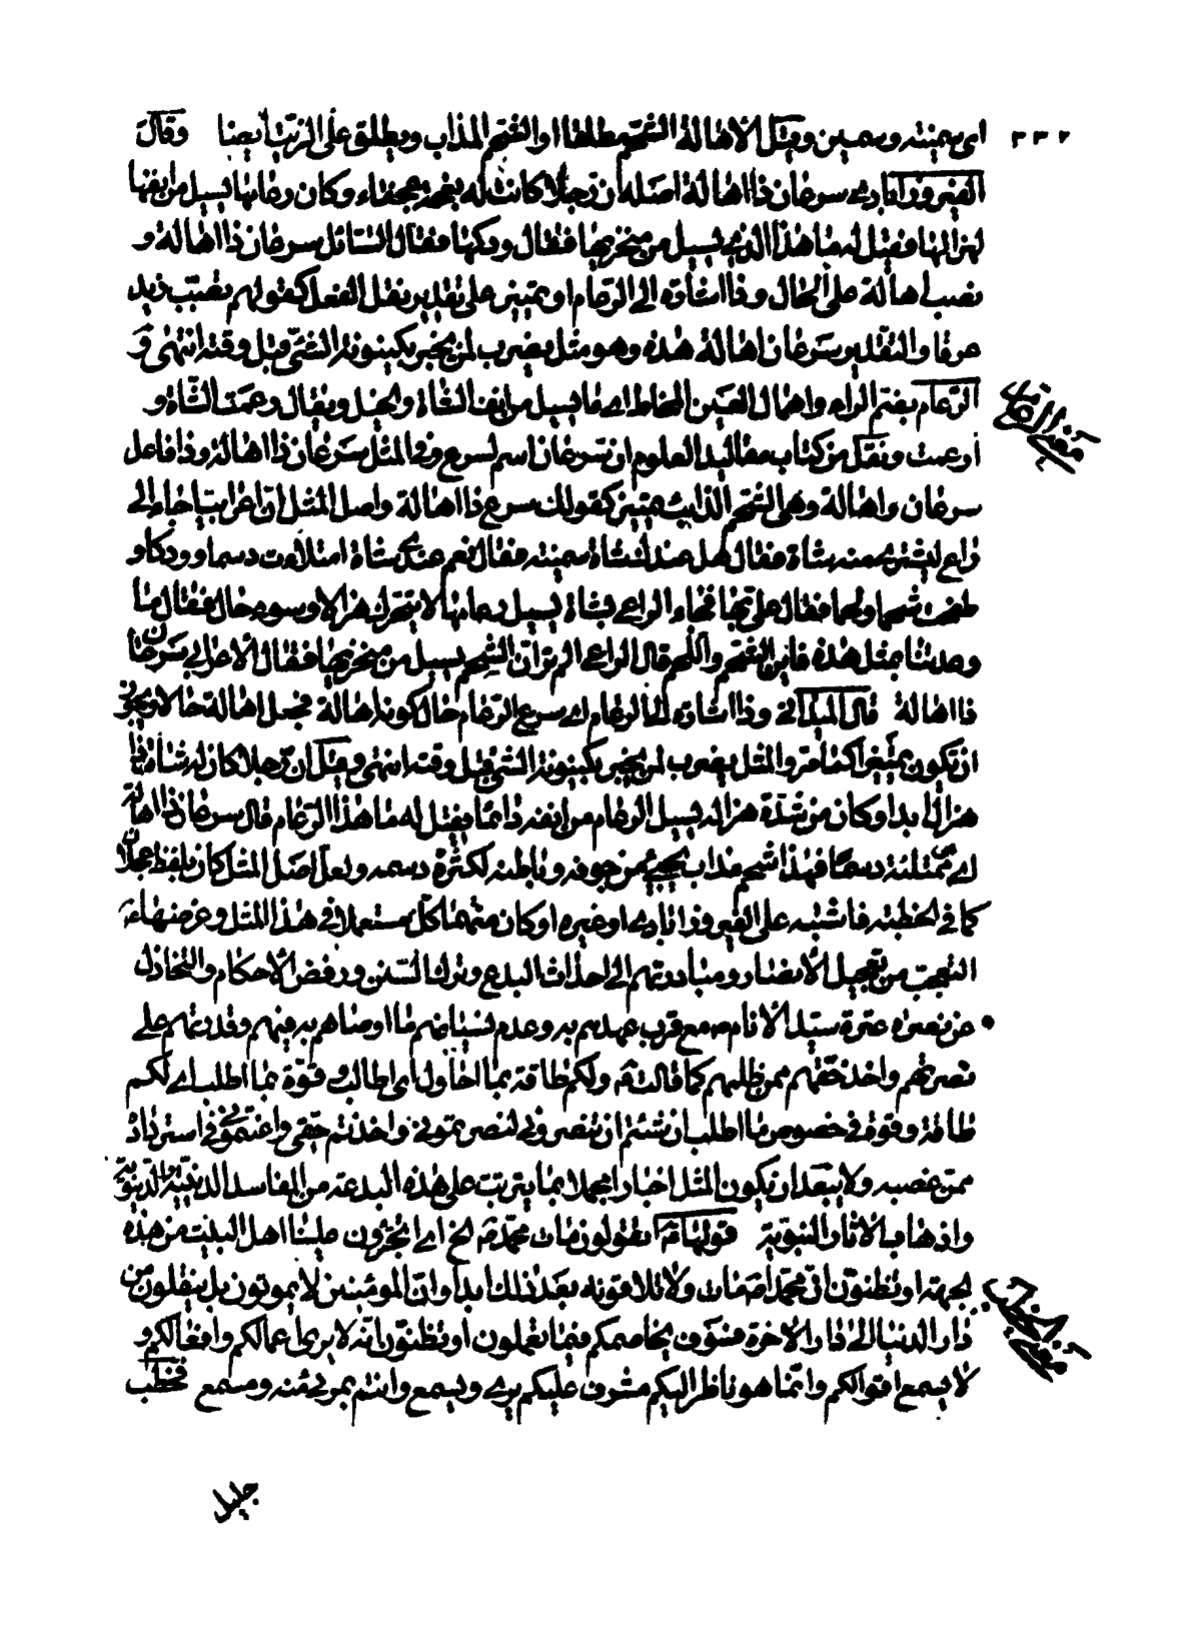 ٣٣٢
اى سمينة وسمين وقيل الاهالة الشحم مطلقا او الشحم المذاب ويطلق على الزيت ايضا وقال
الفيروزابادى سرعان ذا اهالة اصله ان رجلا كانت له نعجة عجفاء وكان رغامها يسيل من انفها
لهزالها فقيل له ما هذا الذى يسيل من منخريها فقال ودكها فقال السائل سرعان ذا اهالة و
نصب اهالة على الحال وذا اشارة الى الرغام او تمييز على تقدير نقل الفعل كقولهم تصبب زيد
عرقا والتقدير سرعان اهالة هذه وهو مثل يضرب لمن يخبر بكينونة الشئ قبل وقته انتهى و
الرعام بضم الراء واهمال العين المخاط اى ما يسيل من انف الشاة والخيل ويقال رعمت الشاة و
ارعمت ونقل من كتاب مقاليد العلوم ان سرعان اسم لسرع وفى المثل سرعان ذا اهالة وذا فاعل
سرعان واهالة وهى الشحم الذائب تمييز كقولك سرع ذا اهالة واصل المثل ان اعرابيا جاء الى
راع ليشترى منه شاة فقال هل عندك شاة سمينة فقال نعم عندى شاة امتلاءت دسما وودكا و
شحما ولحما فقال على بها فجاء الراعى بشاة يسيل رعامها لا يتحرك هزالا وسوء حال فقال ما
وعدتنا بمثل هذه فاين الشحم واللحم قال الراعى الم تر ان الشحم يسيل من منخريها فقال الاعرابى سرعان
ذا اهالة قال الميدانى وذا اشارة الى الرغام اى سرع الرغام حال كونه اهالة فجعل اهالة حالا ويجوز
ان تكون تمييزا كما مر والمثل يضرب لمن يخبر بكينونة الشئ قبل وقته انتهى وقيل ان رجلا كان له شاة
هزالى ابدا وكان من شدة هزاله يسيل الرغام من انفه دائما فقيل له ما هذا الرغام قال سرعان ذا اهالة
اى ممتلئة دسما فهذا شحم مذاب يجيئ من جوفه وباطنه لكثرة دسمه ولعل اصل المثل كان بلفظ عجلان
كما فى الخطبة فاشتبه على الفيروزابادى او غيره او كان منهما كل مستعملا فى هذا المثل وغرضها ع
التعجب من تعجيل الانصار ومبادرتهم الى احداث البدع وترك السنن ورفض الاحكام والتخاذل
عن نصرة عترة سيد الانام ص مع قرب عهدهم به وعدم نسيانهم ما اوصاهم به فيهم وقدرتهم على
نصرتهم واخذ حقهم ممن ظلمهم كما قالت ع ولكم طاقة بما احاول اى اطالب وقوة بما اطلب اى لكم
طاقة وقوة فى خصوص ما اطلب ان شئتم ان تنصرونى لنصرتمونى واخذتم حقى واعنتمونى فى استرداده
ممن غصبه ولا يبعد ان يكون المثل اخبارا مجملا بما يترتب على هذه البدعة من المفاسد الدينية والدنيوية
واذهاب الاثار النبوية قولها ع اتقولون مات محمد ص الخ اى اتجترون علينا اهل البيت من هذه
الجهة او تظنون ان محمدا ص مات ولا تلاقونه بعد ذلك ابدا وان المؤمنين لا يموتون بل ينقلون من
دار الدنيا الى دار الاخرة فسوف يخاصمكم فيما تعملون او تظنون انه لا يرى اعمالكم وافعالكم و
لا يسمع اقوالكم وانما هو ناظر اليكم مشرف عليكم يرى ويسمع وانتم بمرئى منه ومسمع فخطب
جليل